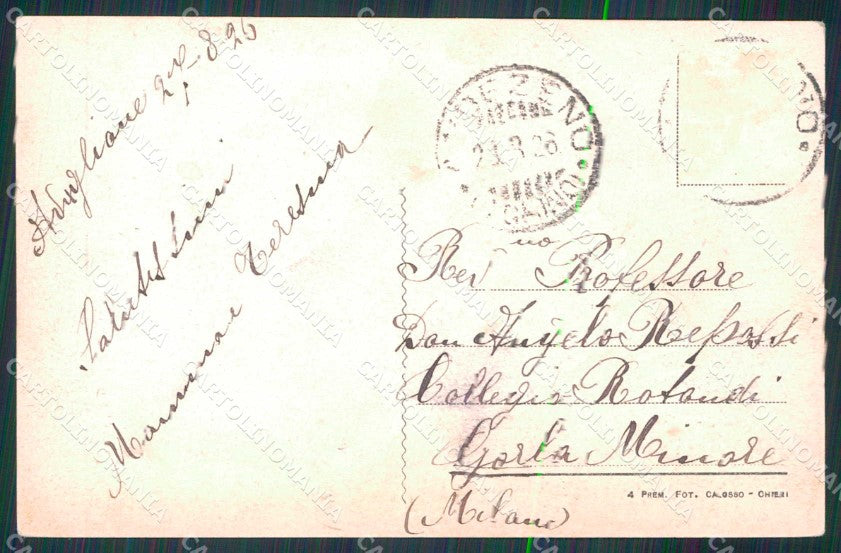 Avigliane 27-8-26
Salutissimi
Mamma e Teresina
ZENO
23.8.26
Rev.no Professore
Don Angelo Repossi
Collegio Rotondi
Gorla Minore
(Milano)
4 PREM. FOT. CALOSSO - CHIERI
CARTOLINOMANIA